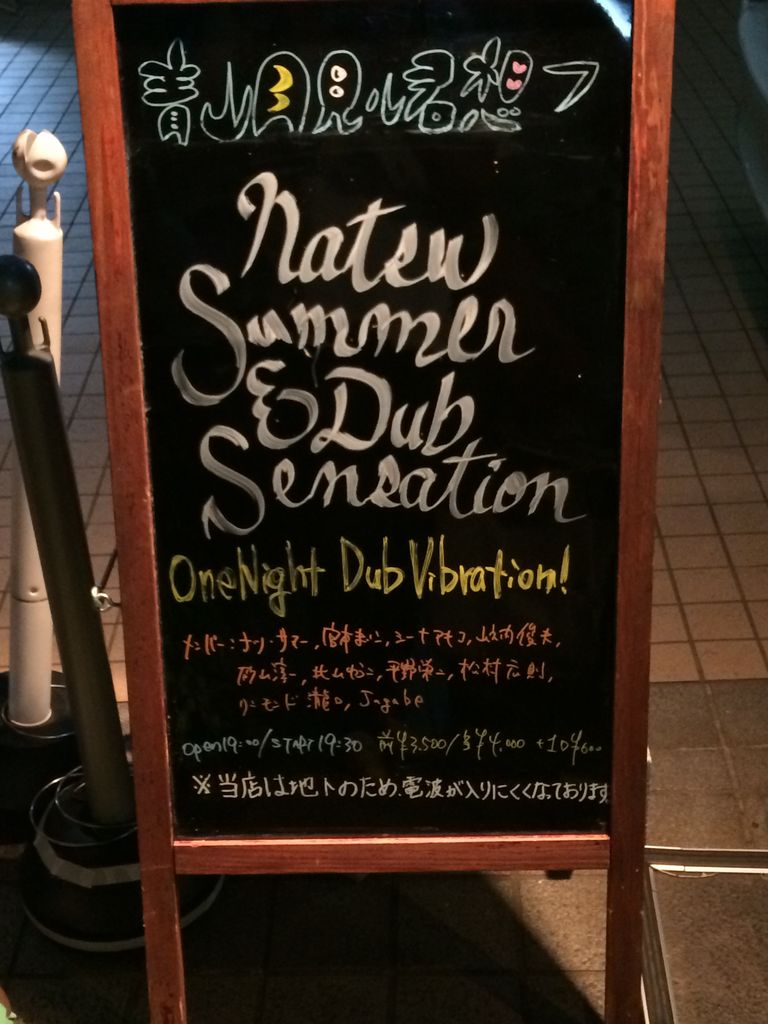 青山月見ル君想フ
Natsu
Summer
& Dub
Sensation
One Night Dub Vibration!
メンバー:ナツ・サマー, 宮本まい, ユーナアキコ, 山内俊夫,
砂山淳一, 北山ゆう二, 平野栄二, 松村広則,
リーモンド瀧口, Jagabe
open19:00/START19:30 前¥3,500/当¥4,000 +1D¥600
※当店は地下のため、電波が入りにくくなっております